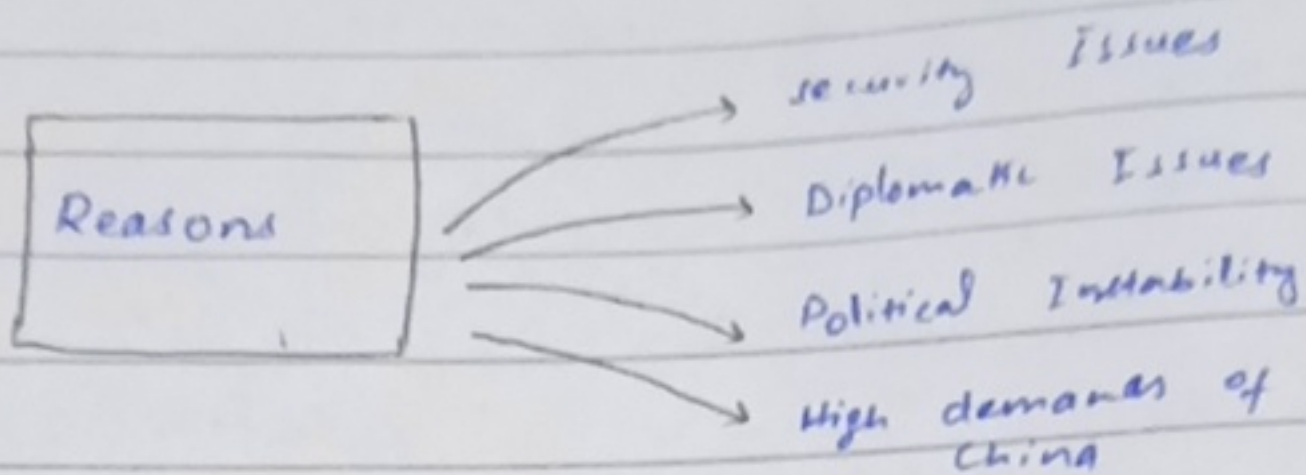 Reasons
security Issues
Diplomatic Issues
Political Instability
High demands of
China